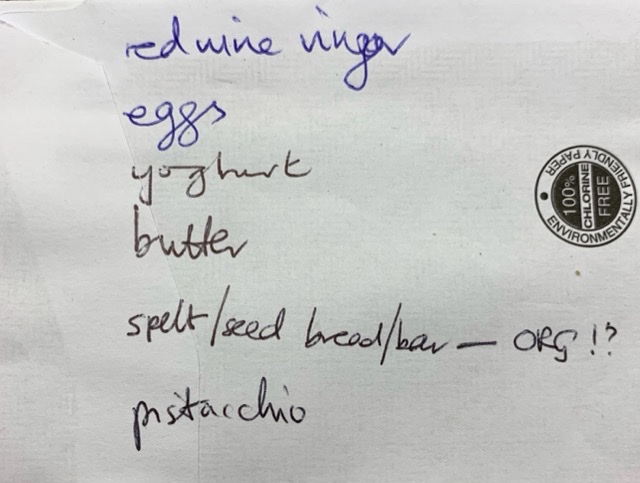 red wine vingar
eggs
yoghurt
butter
spelt/seed bread/bar — ORG !?
pistacchio
100%
CHLORINE
FREE
ENVIRONMENTALLY FRIENDLY PAPER